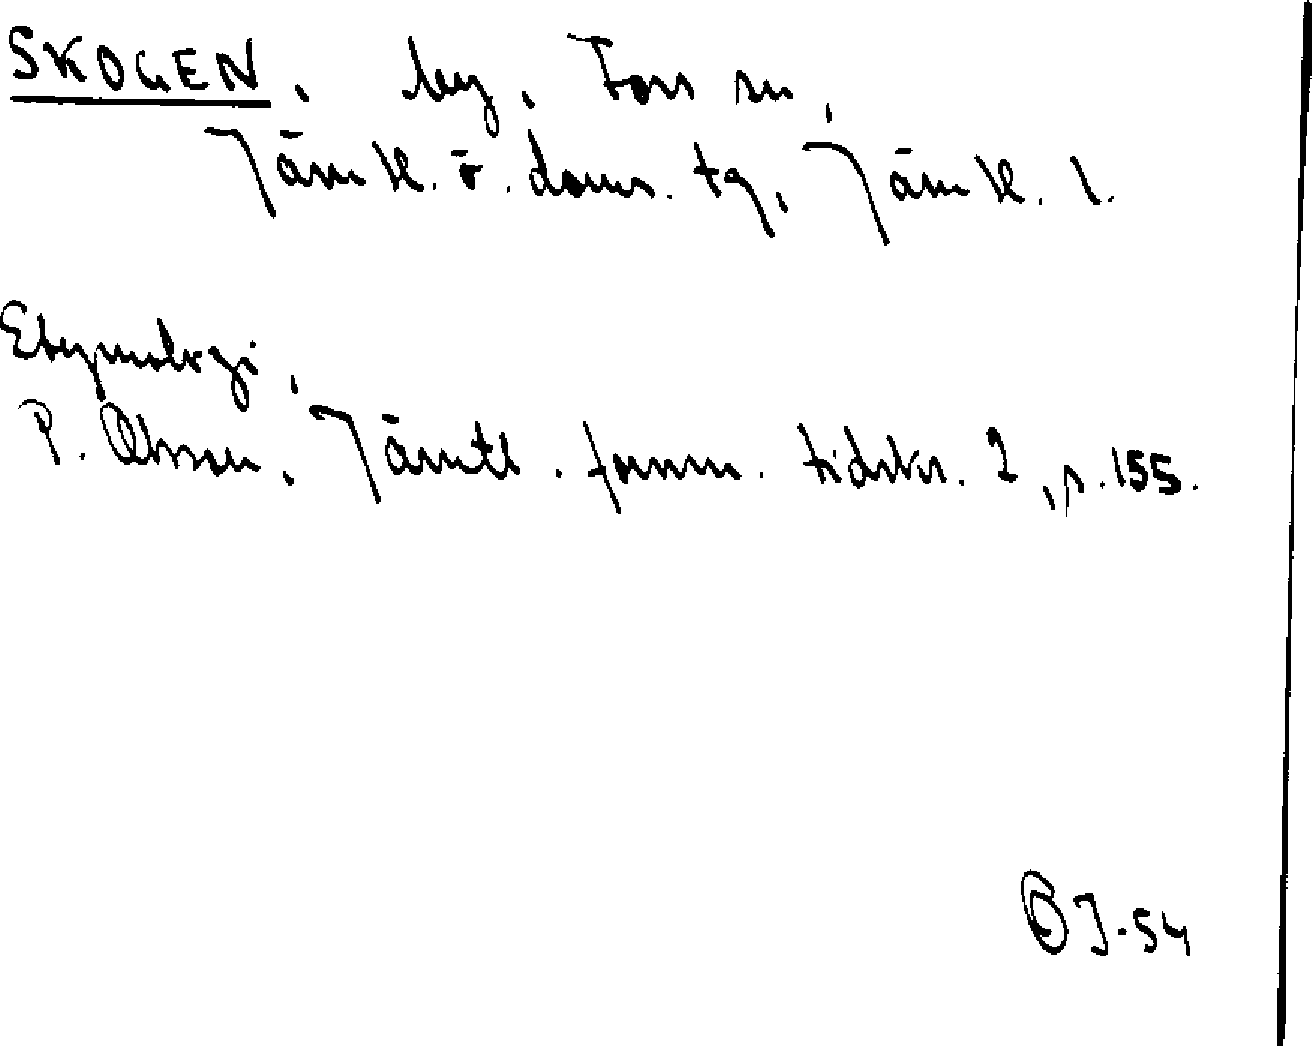 SKOGEN, by, Fors sn,
Jämtl. ö. doms. tg, Jämtl. l.
Etymologi,
P. Olsson, Jämtl. fornm. tidskr. 2, s. 155.
J-54